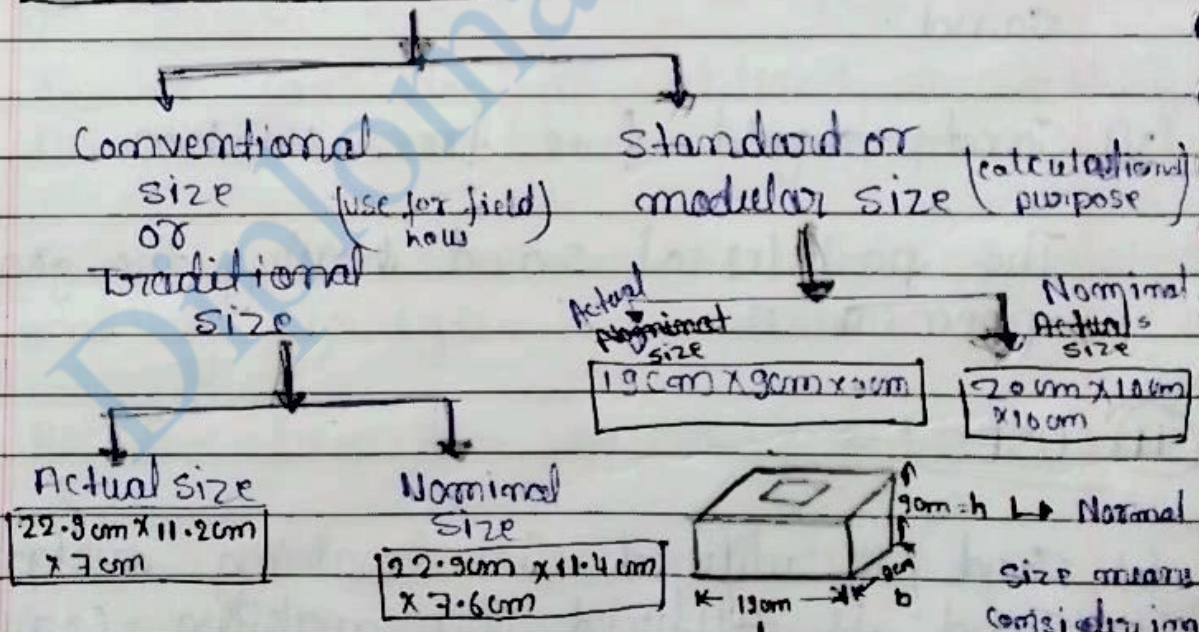 Diploma
Conventional
size
or
Traditional
size
(use for field)
Standard or
modular size
(calculational
purpose)
Actual
size
19cm X 9cm X 9cm
Nominal
size
20cm X 10cm
X 10cm
Actual size
22.9cm X 11.2cm
X 7cm
Nominal
size
22.9cm X 11.4cm
X 7.6cm
9cm = h
9cm
b
19cm
Normal
size means
considering